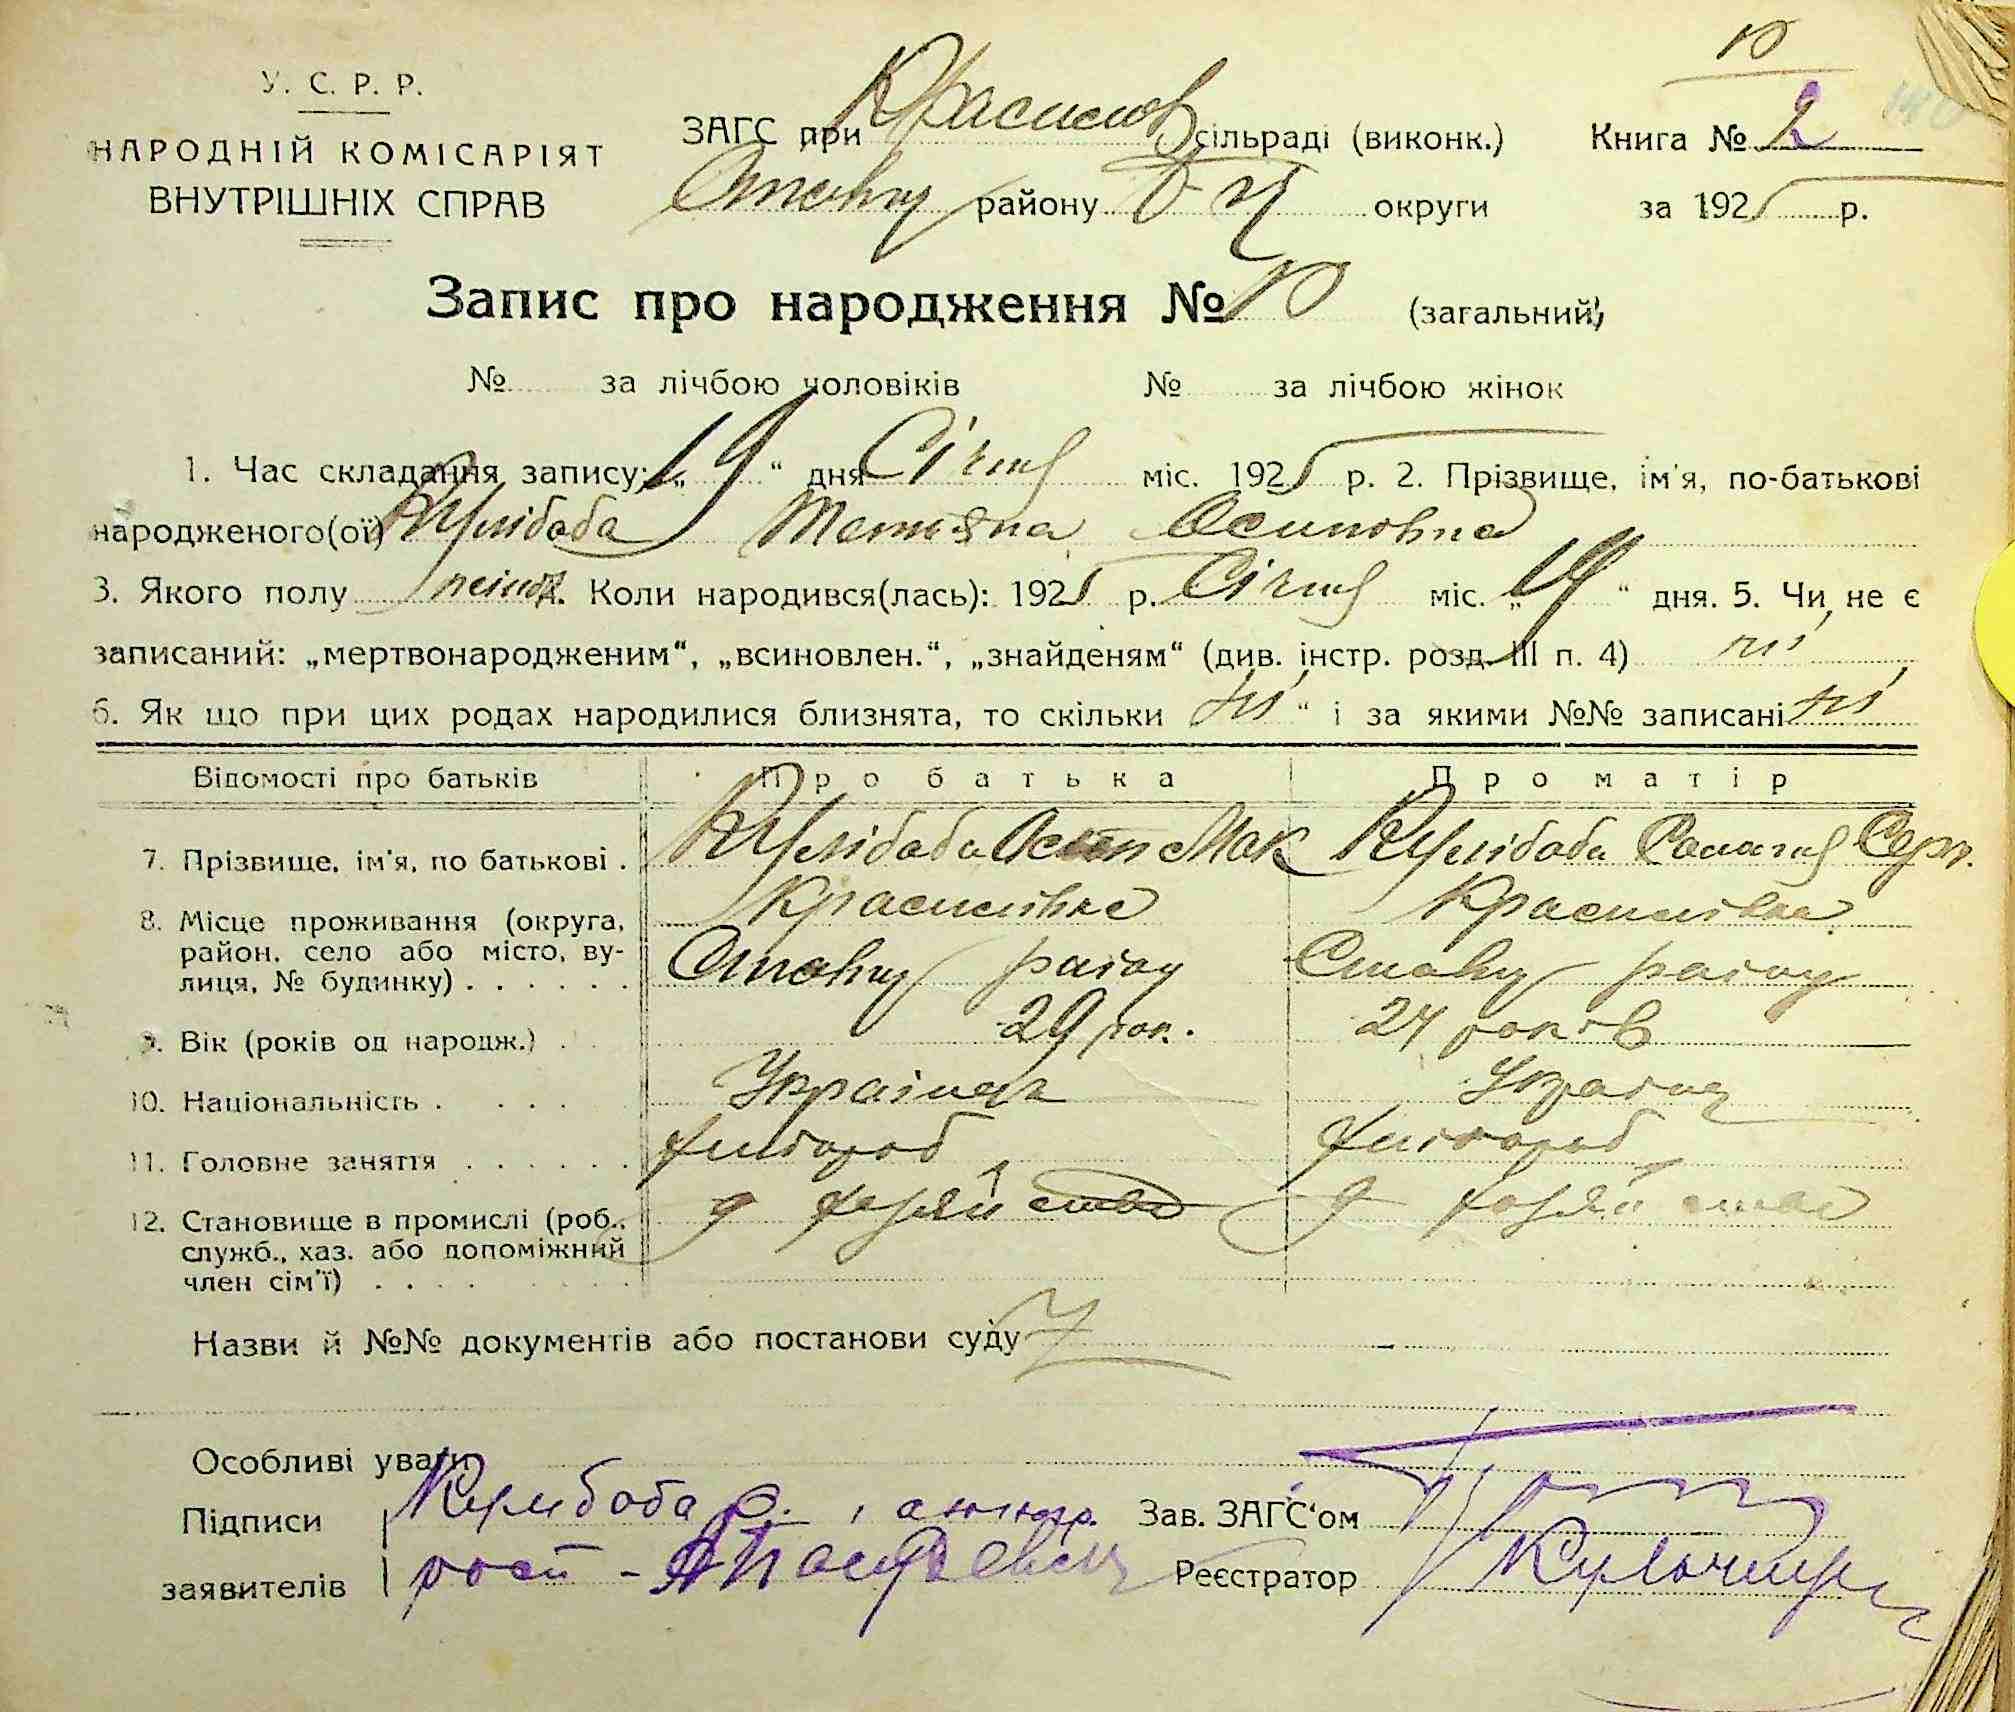 10
У. С. Р. Р.
НАРОДНІЙ КОМІСАРІЯТ
ВНУТРІШНІХ СПРАВ
ЗАГС при Красилов сільраді (виконк.)
Ставищ району Б Ц округи
Книга № 2
за 1925 р.
Запис про народження № 10 (загальний)
№ за лічбою чоловіків № за лічбою жінок
1. Час складання запису; „19“ дня Січня міс. 1925 р. 2. Прізвище, ім'я, по-батькові
народженого(ої) Кулібаба Тетяна Осиповна
3. Якого полу жіноч. Коли народився(лась): 1925 р. Січня міс. „19“ дня. 5. Чи не є
записаний: „мертвонародженим“, „всиновлен.“, „знайденям“ (див. інстр. розд. III п. 4) ні
6. Як що при цих родах народилися близнята, то скільки ні“ і за якими №№ записані ні
Відомості про батьків Про батька Про матір
7. Прізвище, ім'я, по батькові . Кулібаба Осип Мак Кулібаба
8. Місце проживання (округа, Красилівка Красилівка
район, село або місто, ву- Ставищ району Ставищ району
лиця, № будинку) . . . . . .
9. Вік (років од народж.) . . 29 рок. 24 років
10. Національність . . . . Українец Україн
11. Головне заняття . . . . . . хлібороб хлібороб
12. Становище в промислі (роб., у хазяйстві у хазяйстві
служб., хаз. або допоміжний
член сім'ї) . . . . . . . .
Назви й №№ документів або постанови суду
Особливі уваги
Підписи Кулибаба
заявителів
Зав. ЗАГС'ом
Реєстратор